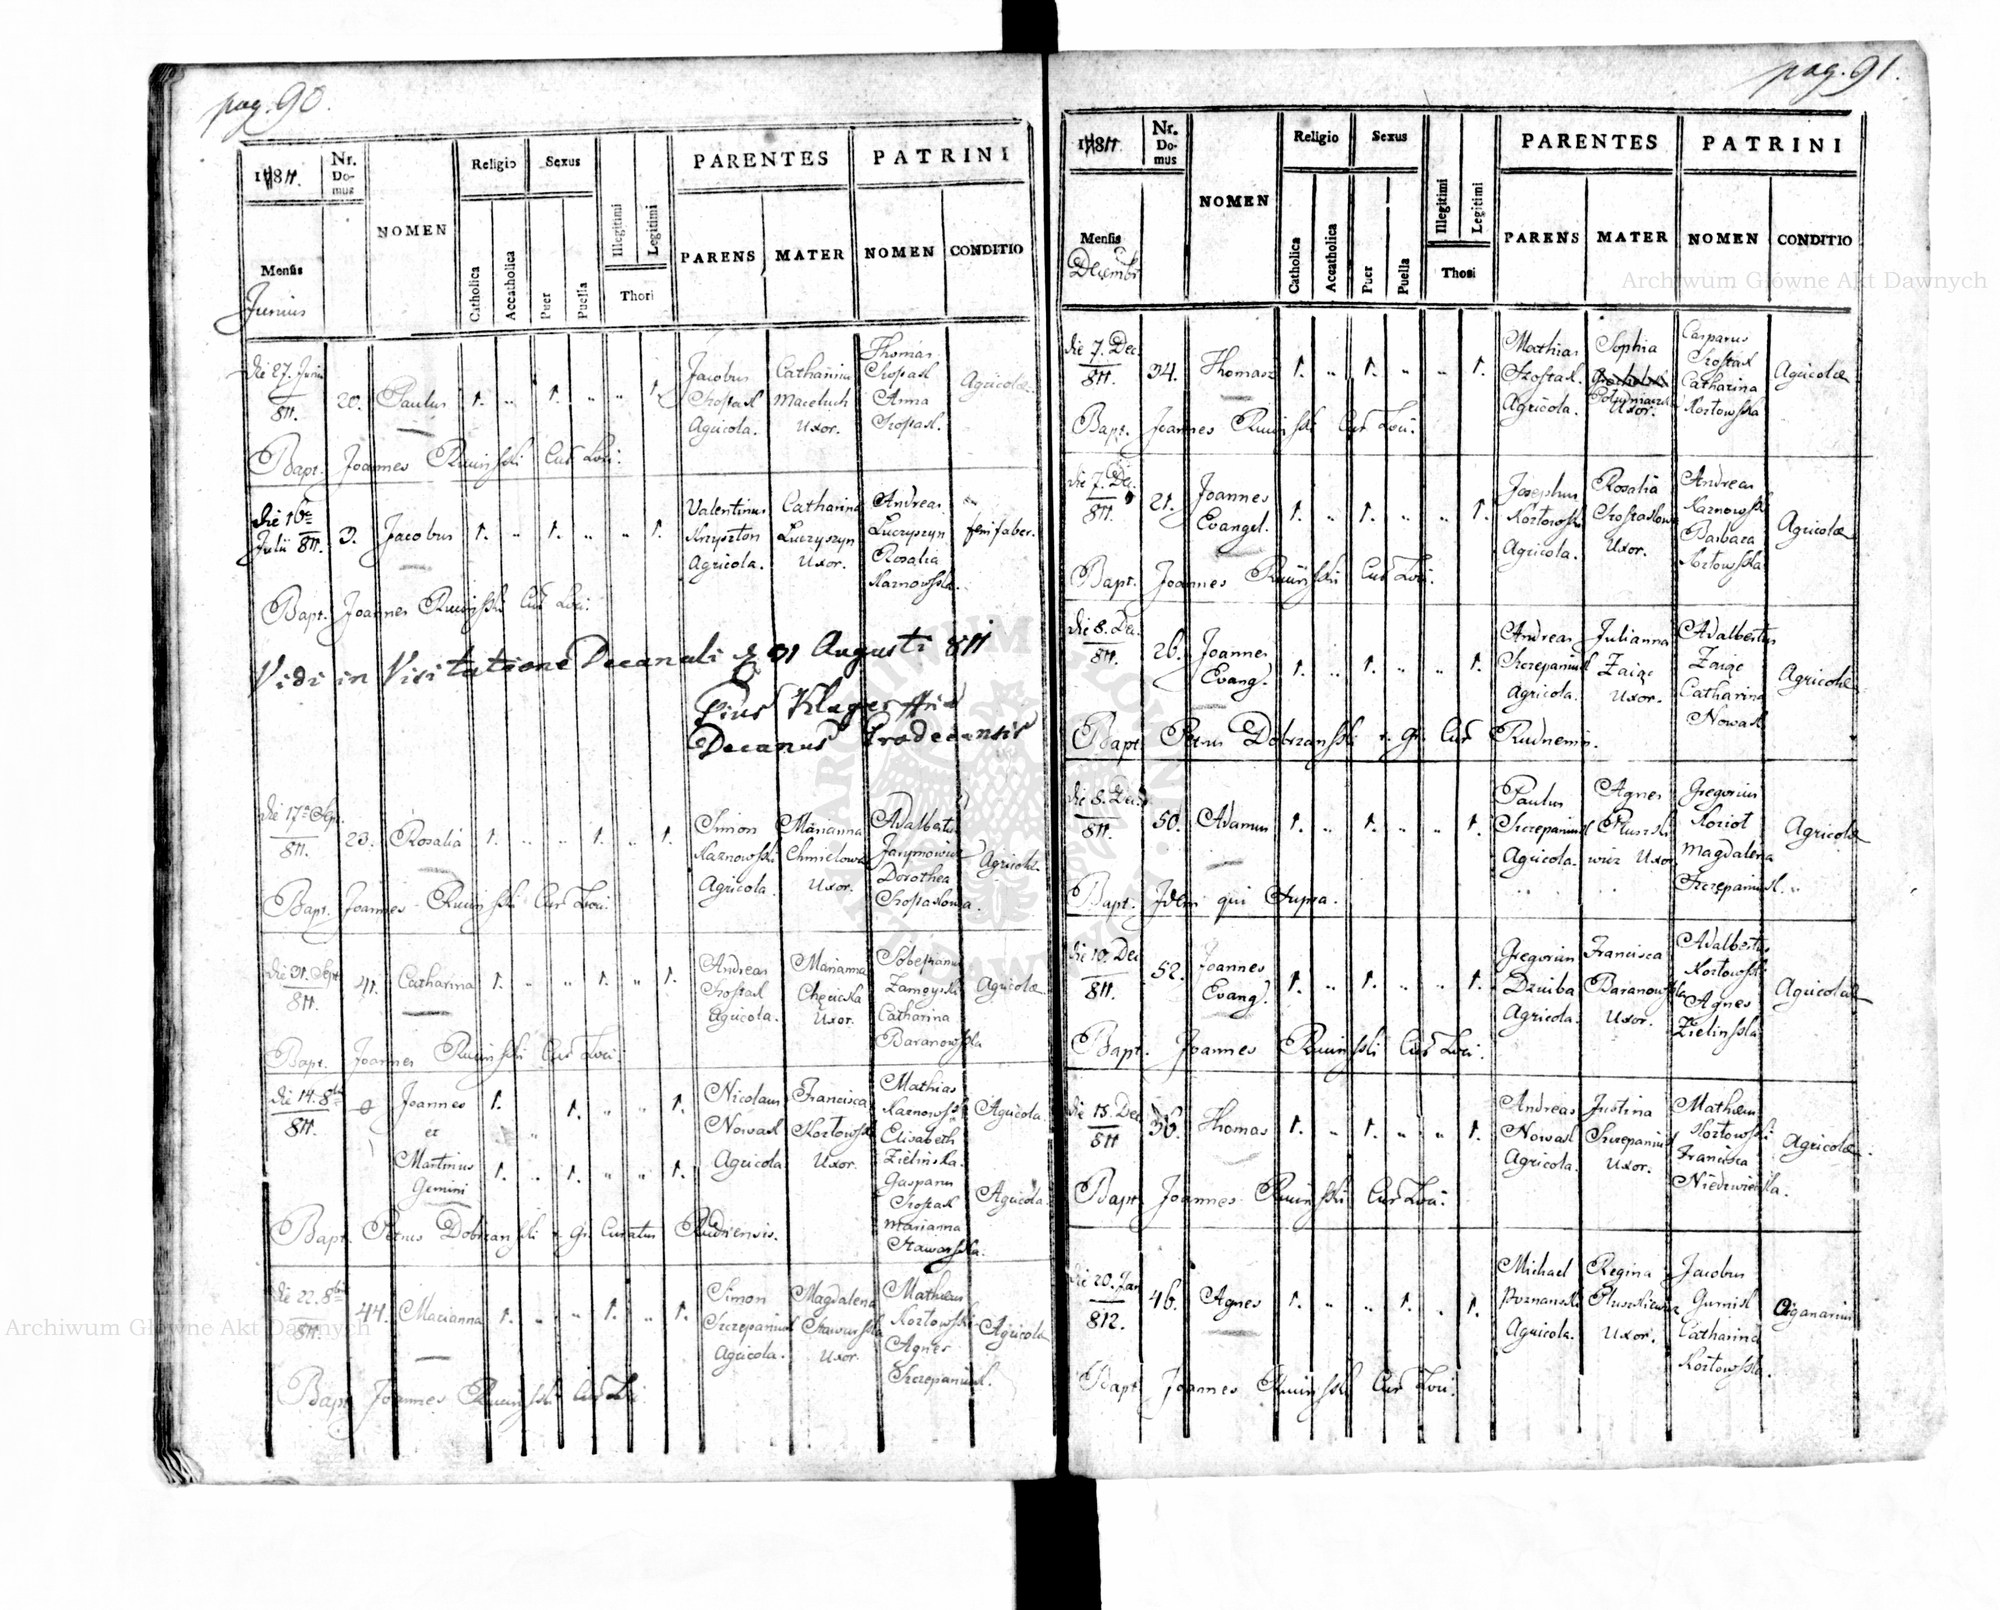 pag. 90.
1811.
Nr. Do-mus
NOMEN
Religio
Sexus
PARENTES
PATRINI
Mensis
Junius
Catholica
Accatholica
Puer
Puella
Illegitimi
Legitimi
Thori
PARENS
MATER
NOMEN
CONDITIO
die 27. Junii 811. 20. Paulus 1. „ 1. „ „ 1.
Jacobus Szostak Agricola.
Catharina Maceluch Uxor.
Thomas Szostak
Anna Szostak.
Agricolae
Bapt. Joannes Cur Loci.
die 16ta Julii 811. 3. Jacobus 1. „ 1. „ „ 1.
Valentinus Krzyszton Agricola.
Catharina Luczyszyn Uxor.
Andreas Luczyszyn
Rosalia Karnowska.
Bapt. Joannes Cur Loci.
Vidi in Visitatione Decanali 31 Augusti 811
Pius
Decanus Grodecensis
die 17a Sept. 811. 23. Rosalia 1. „ „ 1. „ 1.
Simon Karnowski Agricola.
Marianna Chmielowa Uxor.
Adalbertus Jarymowicz
Dorothea Szostakowa.
Agricolae
Bapt. Joannes Cur Loci.
Sept 811. 41. Catharina 1. „ „ 1. „ 1.
Andreas Szostak Agricola.
Marianna Uxor.
Zamoyski
Catharina Baranowska
Agricolae
Bapt. Joannes Cur Loci.
die 14. 8bris 811.
Joannes 1. „ 1. „ „ 1.
et
Martinus 1. „ 1. „ „ 1.
Gemini
Nicolaus Nowak Agricola
Francisca Kozłowska Uxor.
Mathias Karnowski
Elisabeth Zielinska.
Gasparus Szostak
Marianna Stawarska.
Agricola
Agricola.
Bapt. Petrus Dobrzanski r. gr. Curatus Rudnensis.
die 22. 8bris 811. 44. Marianna 1. „ „ 1. „ 1.
Simon Szczepaniak Agricola.
Magdalena Stawarska Uxor.
Mathaeus Kozłowski
Agnes Szczepaniak.
Agricolae
Bapt Joannes Cur Loci
pag. 91.
1811.
Nr. Do-mus
NOMEN
Religio
Sexus
PARENTES
PATRINI
Mensis
Decembr
Catholica
Accatholica
Puer
Puella
Illegitimi
Legitimi
Thori
PARENS
MATER
NOMEN
CONDITIO
die 7. Dec. 811. 34. Thomas 1. „ 1. „ „ 1.
Mathias Szostak. Agricola.
Sophia Uxor.
Casparus Szostak
Catharina Kozłowska
Agricolae
Bapt. Joannes Cur Loci.
die 7. Dec. 811. 21. Joannes Evangel. 1. „ 1. „ „ 1.
Josephus Kozłowski Agricola.
Rosalia Szostakowa Uxor.
Andreas Karnowski
Barbara Kozłowska
Agricolae
Bapt. Joannes Cur Loci.
die 8. Dec. 811. 26. Joannes Evang. 1. „ 1. „ „ 1.
Andreas Szczepaniak Agricola.
Julianna Zając Uxor.
Adalbertus Zając
Catharina Nowak
Agricolae
Bapt Petrus Dobrzanski r. gr. Cur Rudnensis.
die 8. Dec. 811. 50. Adamus 1. „ 1. „ „ 1.
Paulus Szczepaniak Agricola.
Agnes Uxor
Gregorius Kozioł
Magdalena Szczepaniak.
Agricolae
Bapt. Idem qui Supra.
die 10. Dec 811. 52. Joannes Evang. 1. „ 1. „ „ 1.
Gregorius Dziuba Agricola.
Francisca Baranowska Uxor.
Adalbertus Kozłowski
Agnes Zielinska
Agricolae
Bapt. Joannes Cur Loci.
die 15. Dec 811 36. Thomas 1. „ 1. „ „ 1.
Andreas Nowak Agricola.
Justina Szczepaniak Uxor.
Mathaeus Kozłowski
Francisca Niedzwiecka.
Agricolae
Bapt Joannes Cur Loci.
die 20. Jan 812. 46. Agnes 1. „ „ 1. „ 1.
Michael Poznanski Agricola.
Regina Pluszkiewicz Uxor.
Jacobus Gurnik
Catharina Kozłowska.
Bapt Joannes Cur Loci.
Archiwum Główne Akt Dawnych
Archiwum Główne Akt Dawnych